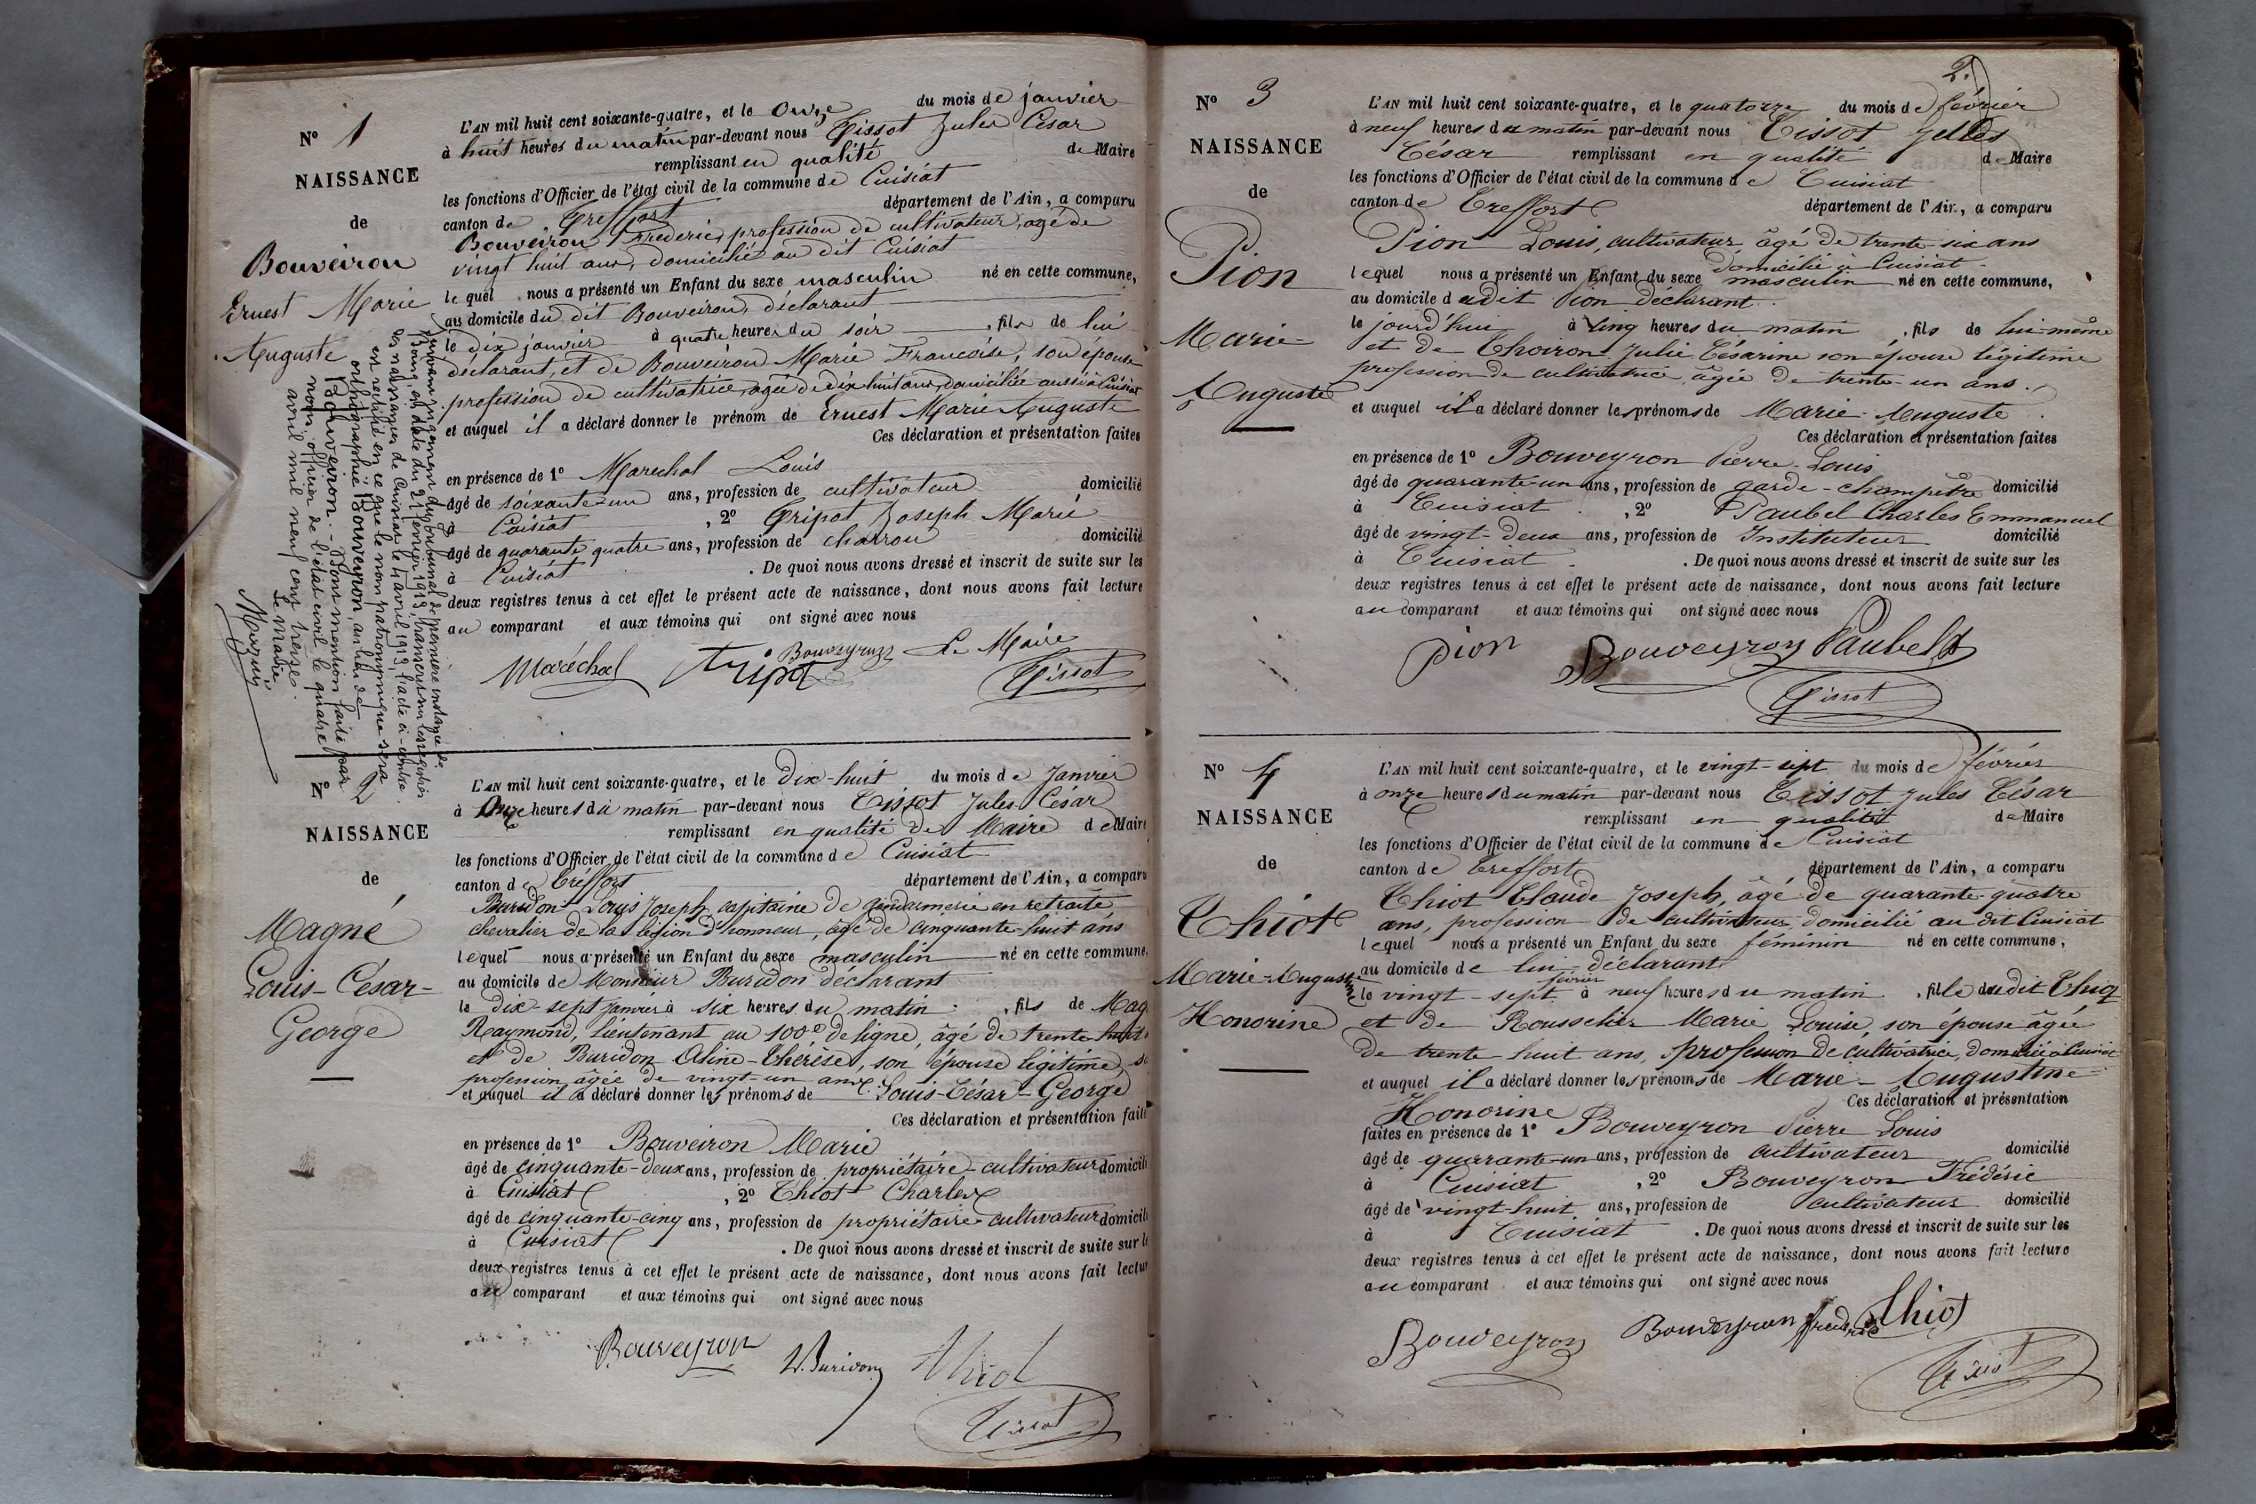 N° 1
NAISSANCE
de
Bouveiron
Ernest Marie
Auguste
L'AN mil huit cent soixante-quatre, et le Onze du mois de janvier
à huit heures du matin par-devant nous Tissot Jules César
remplissant en qualité de Maire
les fonctions d'Officier de l'état civil de la commune de Cuisiat
canton de Treffort département de l'Ain, a comparu
Bouveiron Frederic, profession de cultivateur, agé de
vingt huit ans, domicilié au dit Cuisiat
lequel nous a présenté un Enfant du sexe masculin né en cette commune,
au domicile du dit Bouveiron, déclarant
le dix janvier à quatre heures du soir, fils de lui
déclarant, et de Bouveiron Marie Francoise, son épouse
profession de cultivatrice, agée de dix huit ans, domiciliée aussi à Cuisiat
et auquel il a déclaré donner le prénom de Ernest Marie Auguste
Ces déclaration et présentation faites
en présence de 1° Marechal Louis
âgé de soixante-un ans, profession de cultivateur domicilié
à Cuisiat, 2° Tripot Joseph Marie
âgé de quarante quatre ans, profession de charron domicilié
à Cuisiat. De quoi nous avons dressé et inscrit de suite sur les
deux registres tenus à cet effet le présent acte de naissance, dont nous avons fait lecture
au comparant et aux témoins qui ont signé avec nous
Maréchal Tripot Bouveyron Le Maire
Tissot
Suivant jugement du tribunal de première instance de
Bourg, en date du 21 février 1913, transcrit sur les registres
des naissances de Cuisiat le 4 avril 1913, l'acte ci-contre
est rectifié en ce que le nom patronymique sera
orthographié Bouveyron, au lieu de
Bouveiron. - Dont mention faite par
nous, officier de l'état civil le quatre
avril mil neuf cent treize.
Le Maire
N° 2
NAISSANCE
de
Magné
Louis-César-
George
L'AN mil huit cent soixante-quatre, et le Dix-huit du mois de Janvier
à Onze heures du matin par-devant nous Tissot Jules César
remplissant en qualité de Maire de Maire
les fonctions d'Officier de l'état civil de la commune de Cuisiat
canton de Tréffort département de l'Ain, a comparu
Buridon Louis Joseph, capitaine de gendarmerie en retraite
chevalier de la légion d'honneur, âgé de cinquante-huit ans
lequel nous a présenté un Enfant du sexe masculin né en cette commune,
au domicile de Monsieur Buridon déclarant
le dix-sept Janvier à six heures du matin, fils de Mag
Raymond, lieutenant au 100e de ligne, âgé de trente-huit
et de Buridon Aline-Thérèse, son épouse légitime, s
profession, âgée de vingt-un ans
et auquel il a déclaré donner les prénoms de Louis-César-George
Ces déclaration et présentation faite
en présence de 1° Bouveiron Marie
âgé de cinquante-deux ans, profession de propriétaire-cultivateur domicili
à Cuisiat, 2° Thiot Charles
âgé de cinquante-cinq ans, profession de propriétaire-cultivateur domicili
à Cuisiat. De quoi nous avons dressé et inscrit de suite sur l
deux registres tenus à cet effet le présent acte de naissance, dont nous avons fait lectu
au comparant et aux témoins qui ont signé avec nous
Bouveyron L. Buridon Thiot
Tissot
2.
N° 3
NAISSANCE
de
Pion
Marie-
Auguste
L'AN mil huit cent soixante-quatre, et le quatorze du mois de février
à neuf heures du matin par-devant nous Tissot Jules
César remplissant en qualité de Maire
les fonctions d'Officier de l'état civil de la commune de Cuisiat
canton de Treffort département de l'Ain, a comparu
Pion Louis, cultivateur, âgé de trente-six ans
domicilié à Cuisiat.
lequel nous a présenté un Enfant du sexe masculin né en cette commune,
au domicile dudit Pion déclarant.
le jourd'hui à cinq heures du matin, fils de lui-même
et de Thoiron Julie Césarine son épouse légitime
profession de cultivatrice, âgée de trente-un ans.
et auquel il a déclaré donner les prénoms de Marie-Auguste.
Ces déclaration et présentation faites
en présence de 1° Bouveyron Pierre-Louis
âgé de quarante-un ans, profession de garde-champêtre domicilié
à Cuisiat, 2° Paubel Charles Emmanuel
âgé de vingt-deux ans, profession de Instituteur domicilié
à Cuisiat. De quoi nous avons dressé et inscrit de suite sur les
deux registres tenus à cet effet le présent acte de naissance, dont nous avons fait lecture
au comparant et aux témoins qui ont signé avec nous
Pion Bouveyron Paubel
Tissot
N° 4
NAISSANCE
de
Thiot
Marie-Augustine
Honorine
L'AN mil huit cent soixante-quatre, et le vingt-sept du mois de février
à onze heures du matin par-devant nous Tissot Jules César
remplissant en qualité de Maire
les fonctions d'Officier de l'état civil de la commune de Cuisiat
canton de Treffort département de l'Ain, a comparu
Thiot Claude Joseph, âgé de quarante-quatre
ans, profession de cultivateur domicilié au dit Cuisiat
lequel nous a présenté un Enfant du sexe féminin né en cette commune,
au domicile de lui déclarant
le vingt-sept février à neuf heures du matin, fille dudit Thiot
et de Rousselier Marie Louise, son épouse âgée
de trente-huit ans, profession de cultivatrice, domiciliée à Cuisiat
et auquel il a déclaré donner les prénoms de Marie-Augustine-
Ces déclaration et présentation
Honorine
faites en présence de 1° Bouveyron Pierre Louis
âgé de quarante-un ans, profession de cultivateur domicilié
à Cuisiat, 2° Bouveyron Frédéric
âgé de vingt-huit ans, profession de cultivateur domicilié
à Cuisiat. De quoi nous avons dressé et inscrit de suite sur les
deux registres tenus à cet effet le présent acte de naissance, dont nous avons fait lecture
au comparant et aux témoins qui ont signé avec nous
Bouveyron Bouveyron fredric Thiot
Tissot